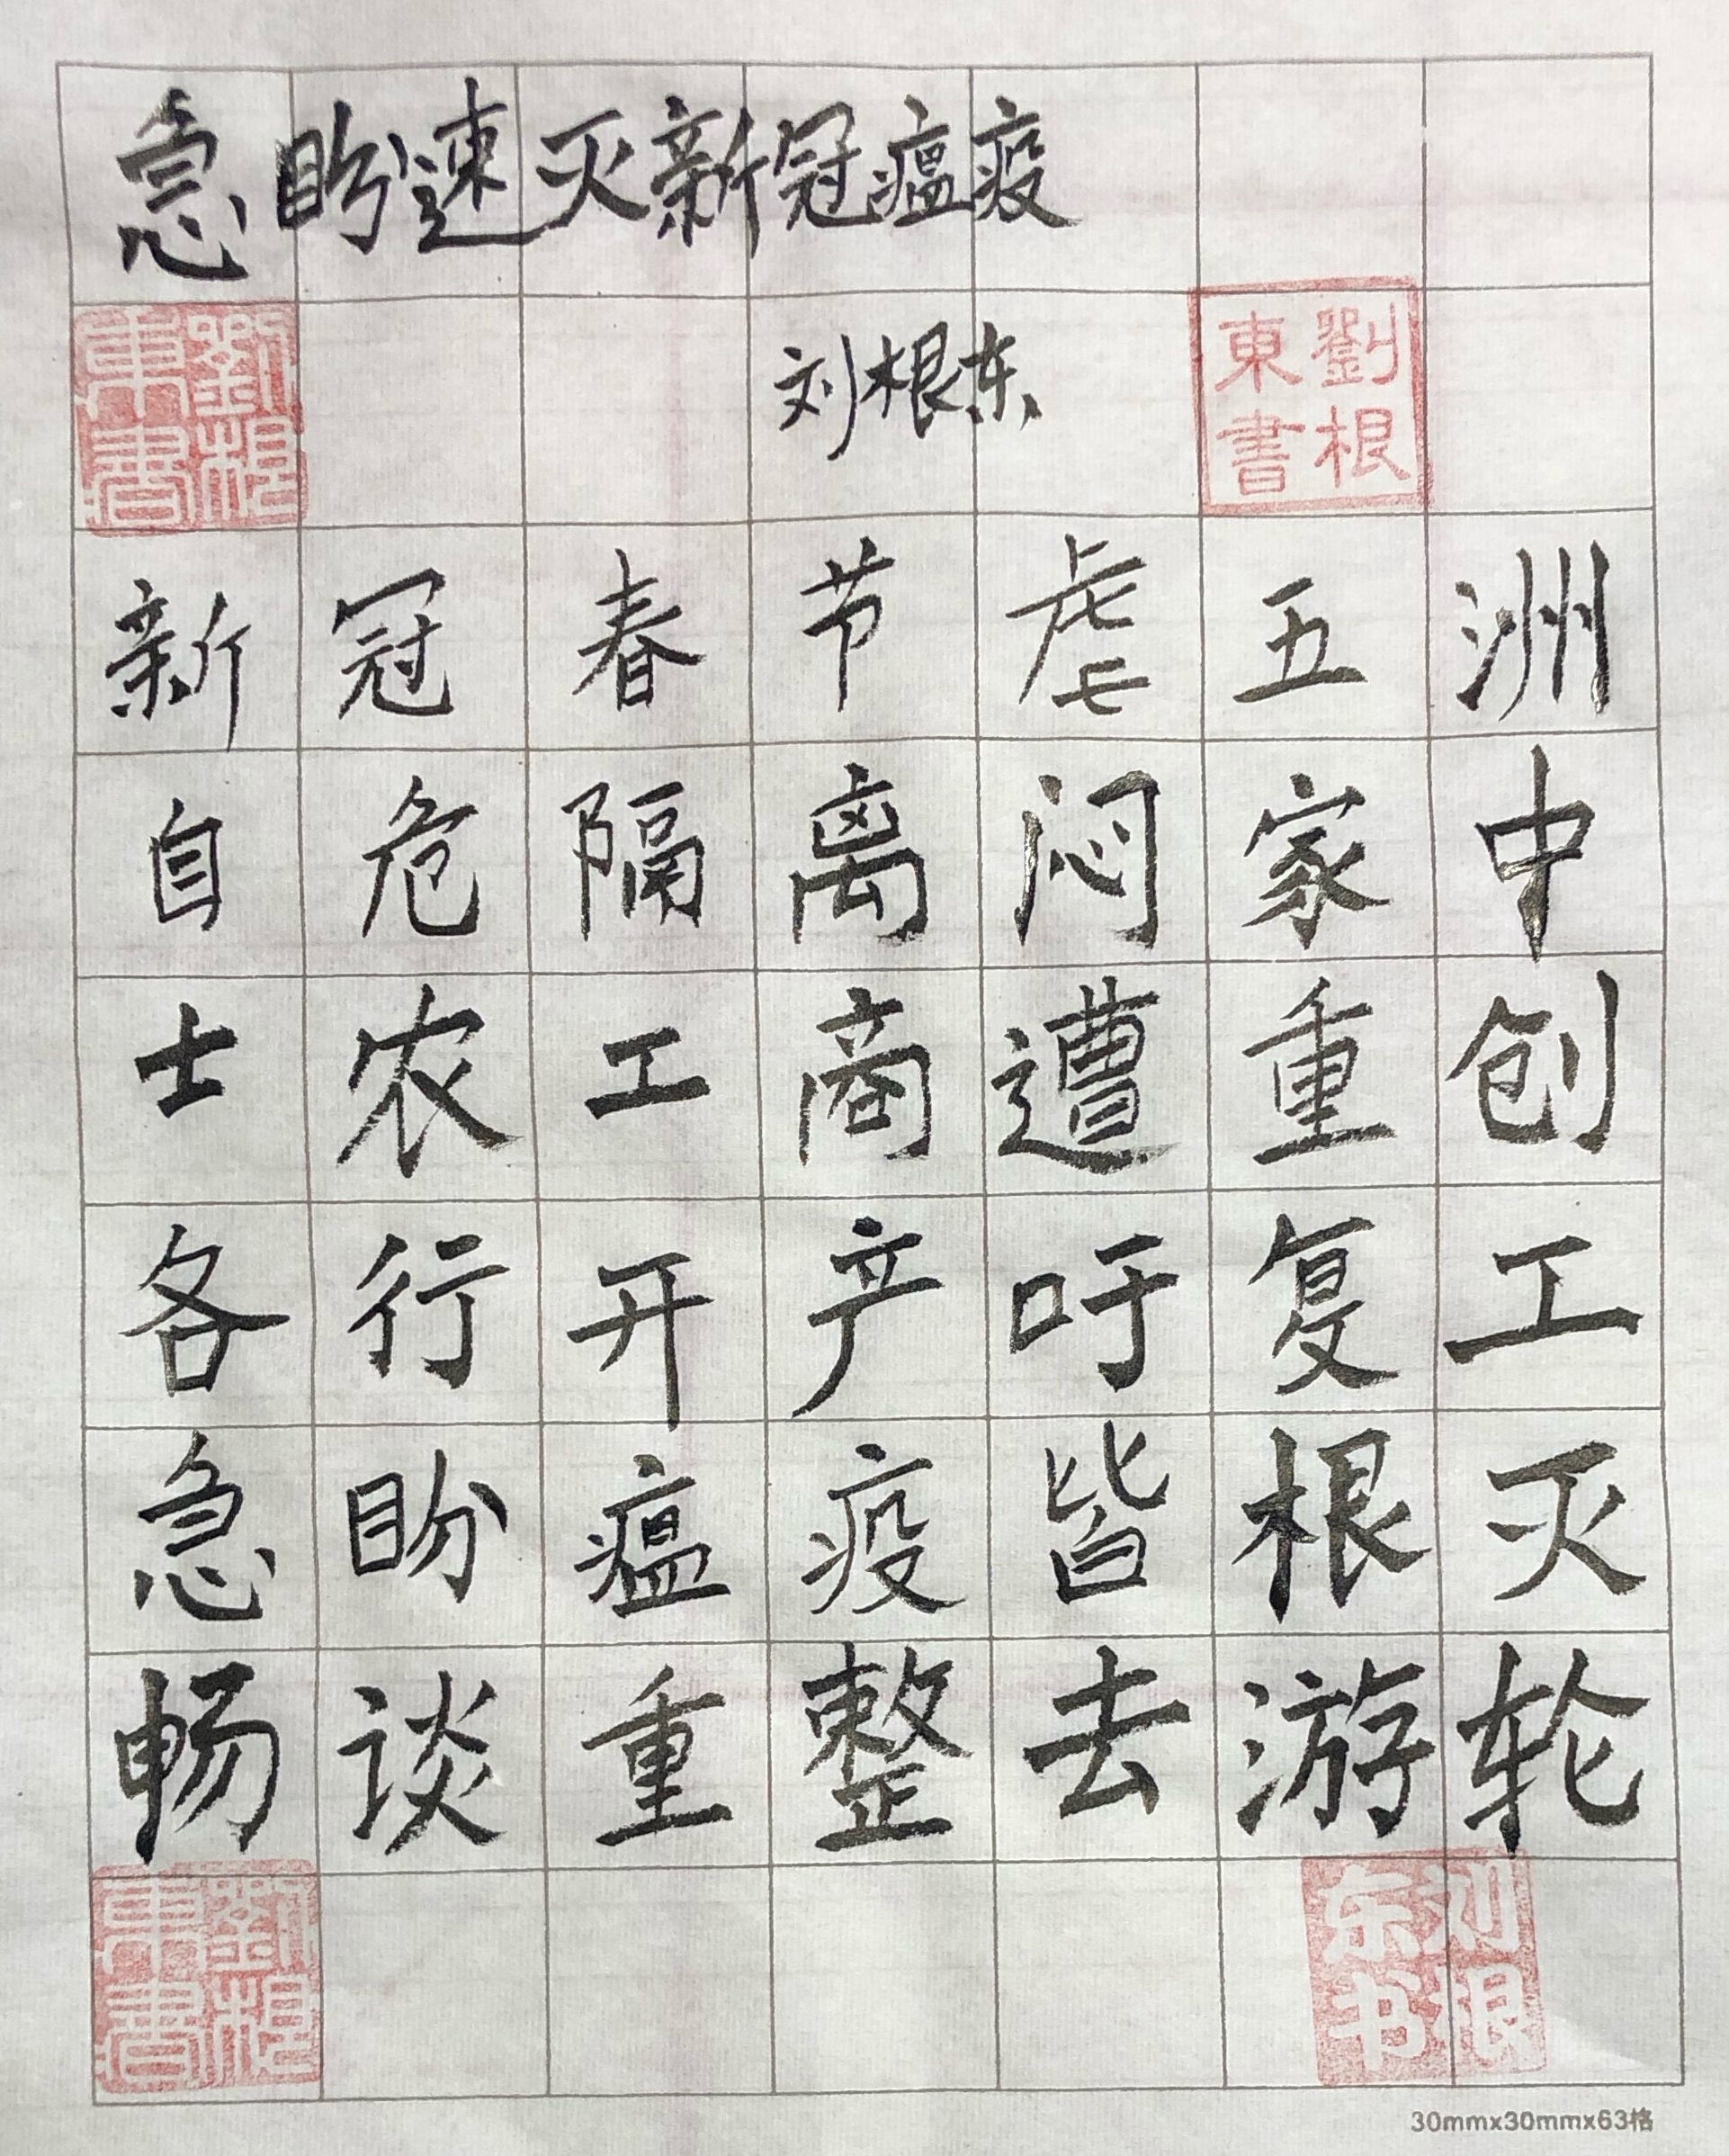 急盼速灭新冠瘟疫
刘根东
劉根東書
劉根東書
新冠春节虐五洲
自危隔离闷家中
士农工商遭重创
各行开产吁复工
急盼瘟疫皆根灭
畅谈重整去游轮
劉根東書
刘根东书
30mmx30mmx63格